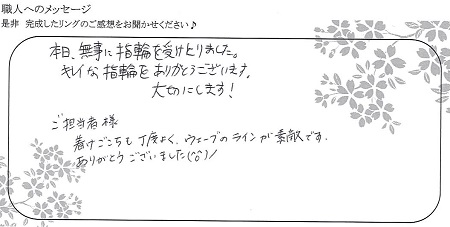 職人へのメッセージ
是非 完成したリングのご感想をお聞かせください♪
本日、無事に指輪を受けとりました。
キレイな指輪をありがとうございます。
大切にします!
ご担当者様
着けごこちも丁度よく、ウェーブのラインが素敵です。
ありがとうございました(^o^)/